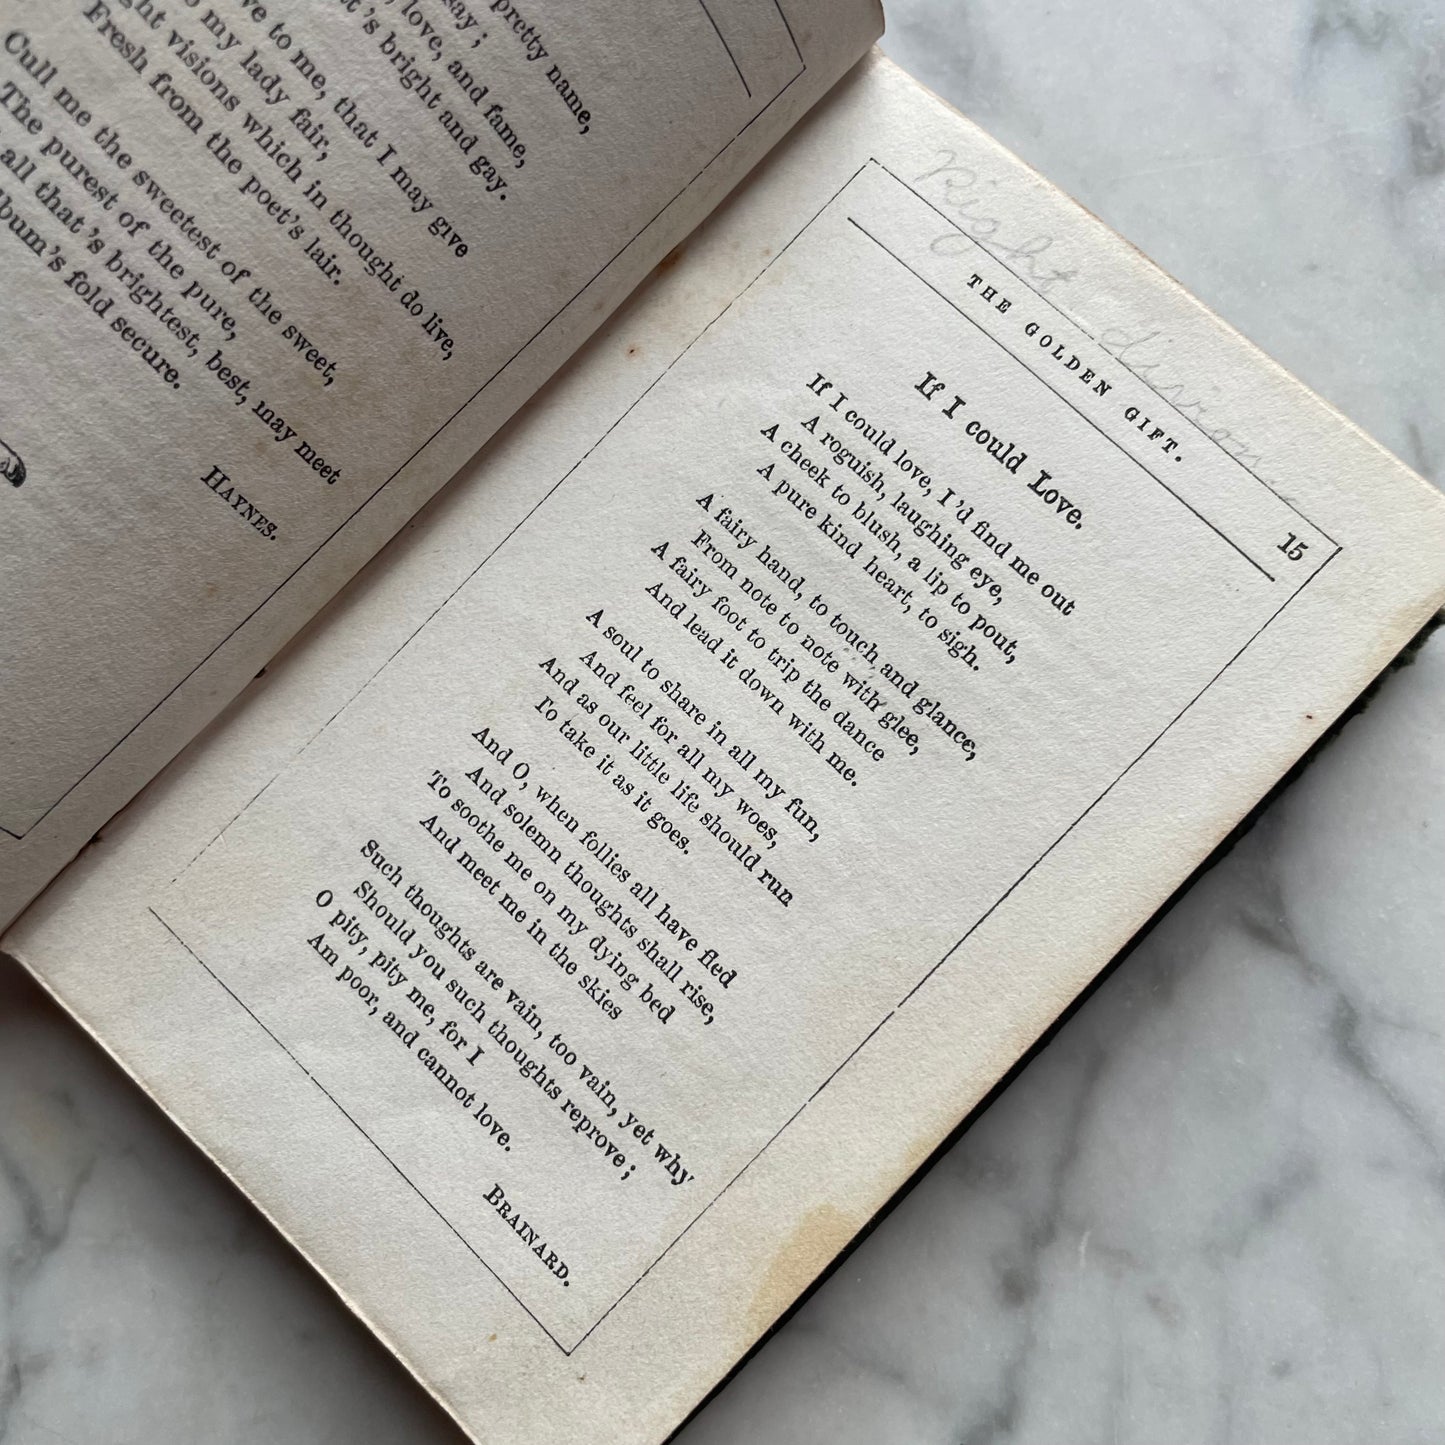 pretty name,
love, and fame,
bright and gay.
to me, that I may give
my lady fair,
visions which in thought do live,
Fresh from the poet's lair.
Cull me the sweetest of the sweet,
The purest of the pure,
all that's brightest, best, may meet
fold secure.
HAYNES.
Right
THE GOLDEN GIFT.
15
If I could Love.
If I could love, I'd find me out
A roguish, laughing eye,
A cheek to blush, a lip to pout,
A pure kind heart, to sigh.
A fairy hand, to touch and glance,
From note to note with glee,
A fairy foot to trip the dance
And lead it down with me.
A soul to share in all my fun,
And feel for all my woes,
And as our little life should run
To take it as it goes.
And O, when follies all have fled
And solemn thoughts shall rise,
To soothe me on my dying bed
And meet me in the skies
Such thoughts are vain, too vain, yet why
Should you such thoughts reprove;
O pity, pity me, for I
Am poor, and cannot love.
BRAINARD.